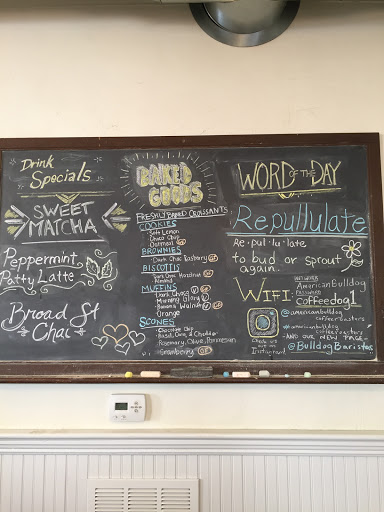 Drink
Specials
SWEET
MATCHA
Peppermint
Patty Latte
Broad St
Chai
BAKED
GOODS
FRESHLY BAKED CROISSANTS
COOKIES
Soft Lemon
Choco Chip
Oatmeal GF
BROWNIES
Dark Choc Rasberry GF
BISCOTTIS
Dark Choc Hazelnut
Almond
MUFFINS
Dark Choco V
Morning Glory V
Banana Walnut GF
Orange
SCONES
Chocolate Chip
Basil, Chive & Cheddar
Rosemary, Olive, Parmesan
Cranberry GF
WORD OF THE DAY
Repullulate
Re·pul·lu·late
to bud or sprout
again.
WIFI:
NETWORK
AmericanBulldog
PASSWORD
coffeedog1
@americanbulldog
coffeeroasters
#americanbulldog
coffeeroasters
AND OUR NEW PAGE!
@BulldogBaristas
Check us
out on
Instagram!